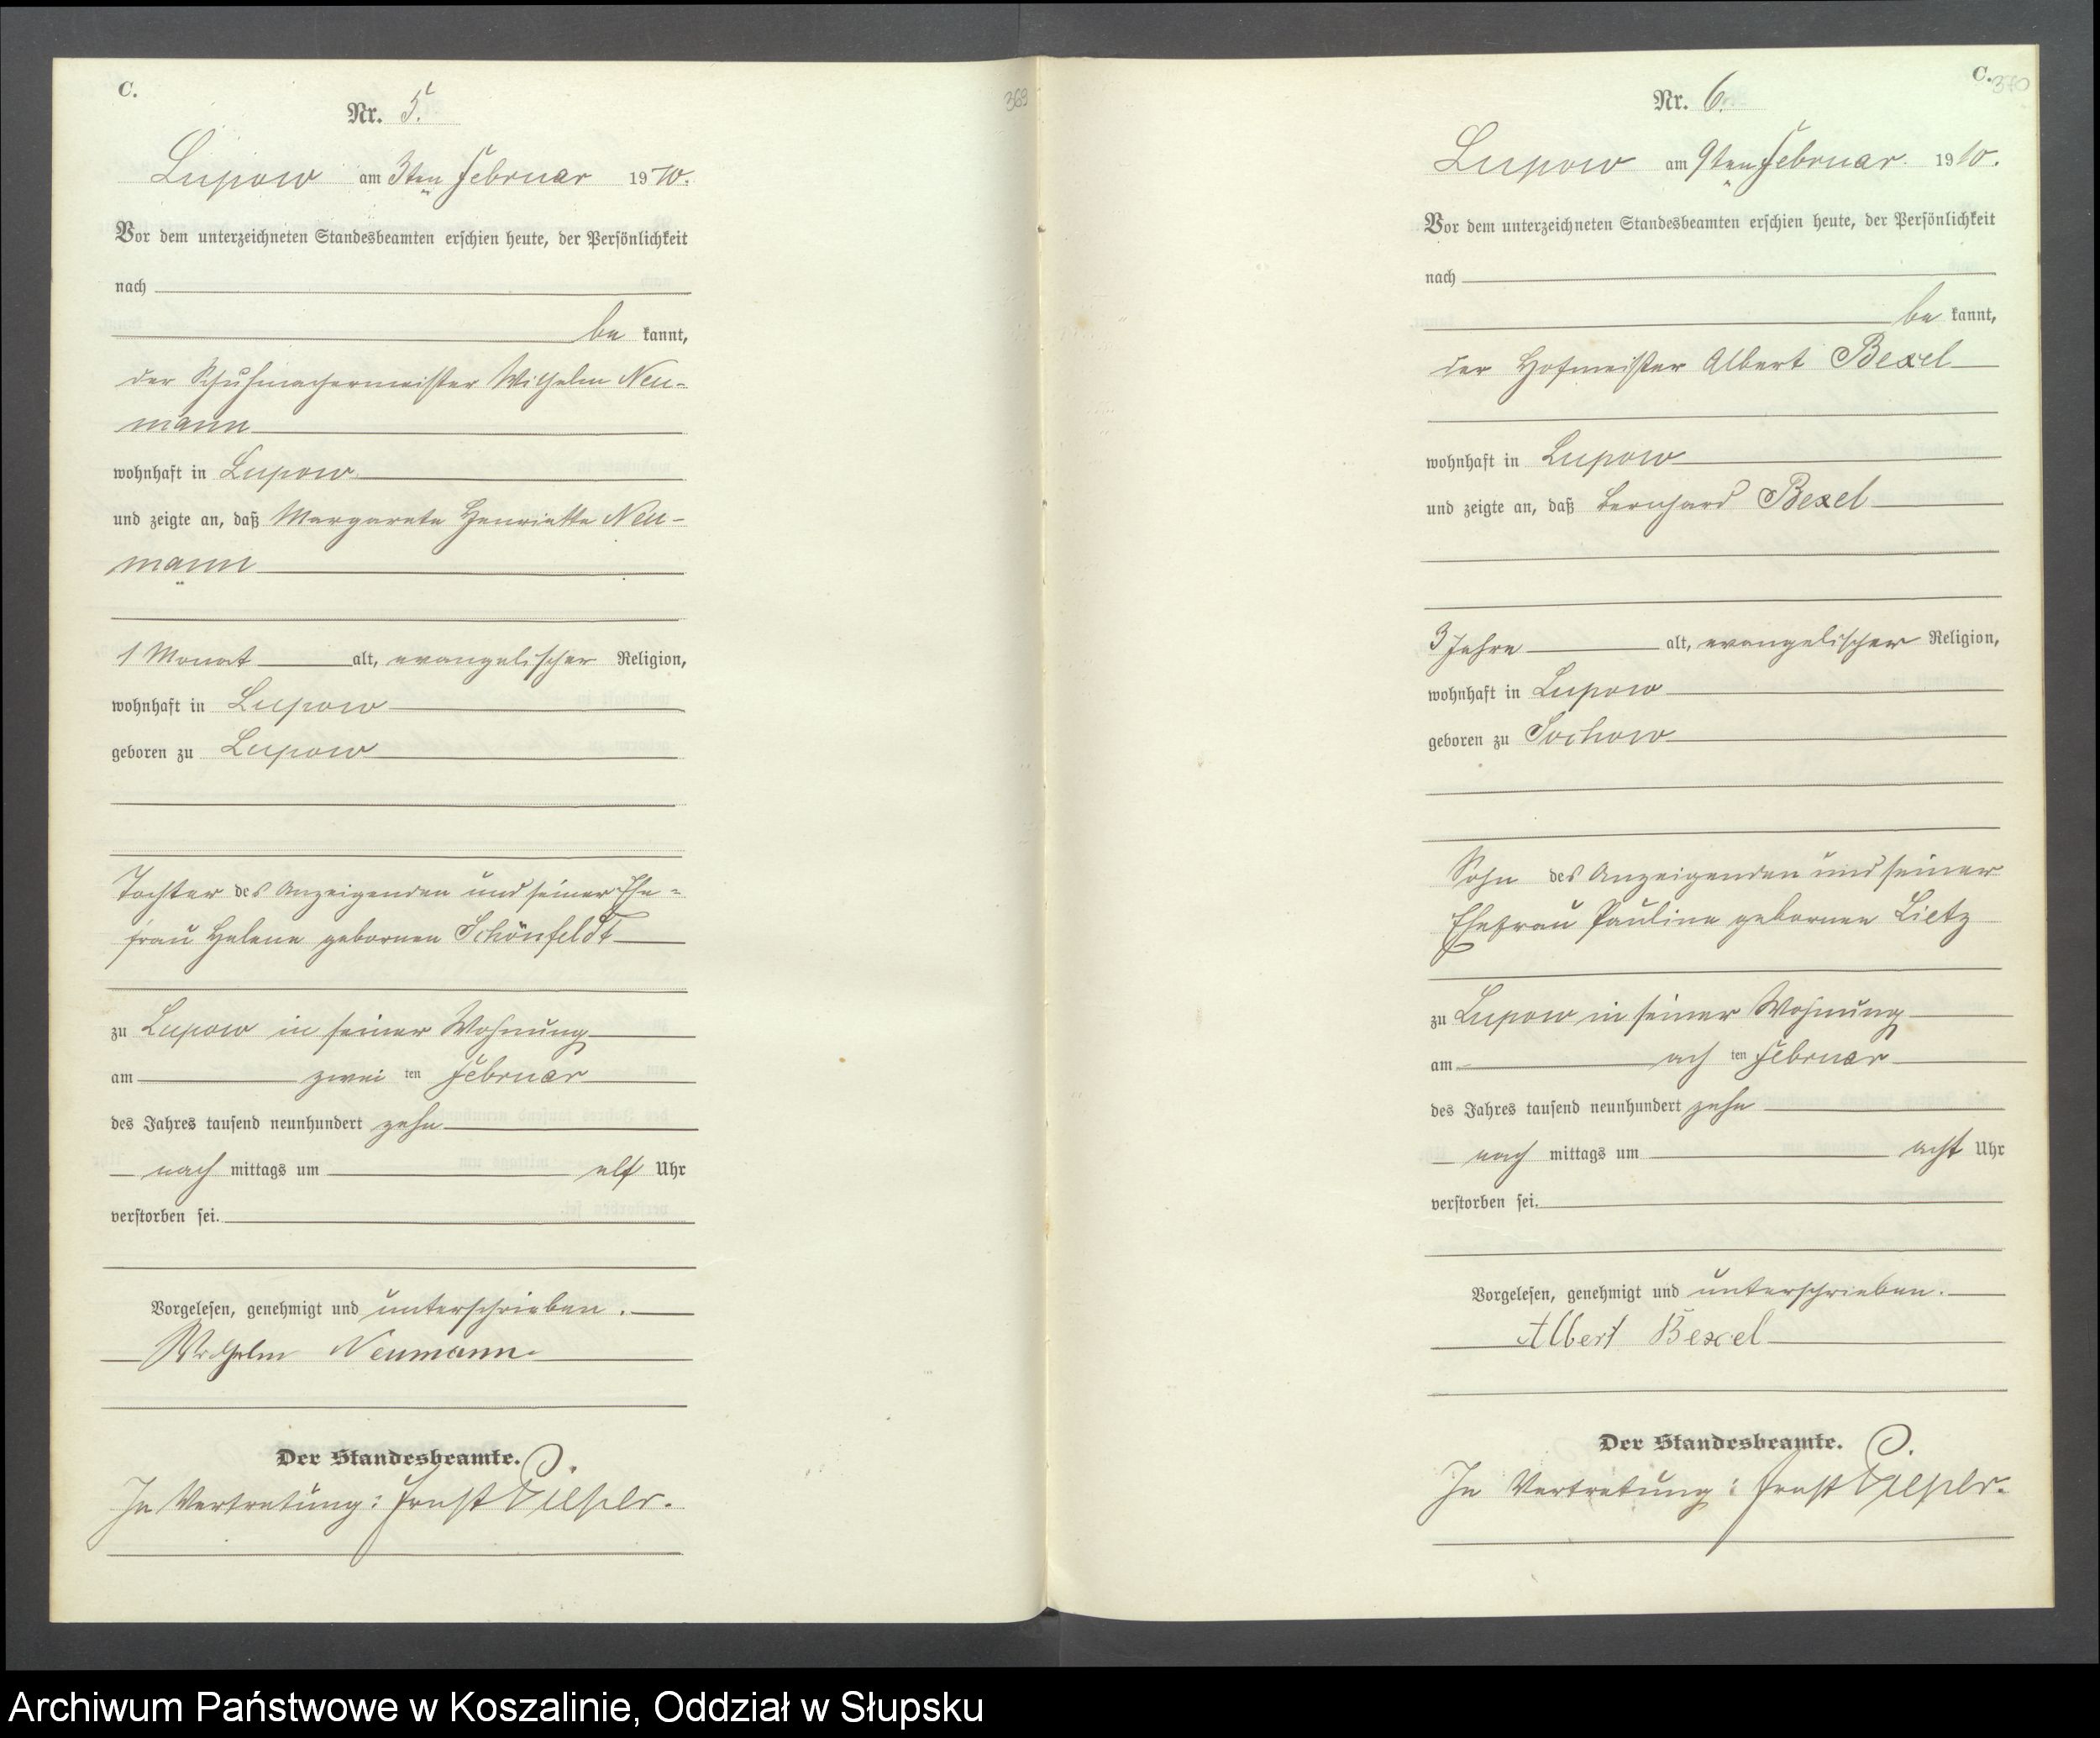 C.
Nr. 5.
369
Lupow am 3ten Februar 1910.
Vor dem unterzeichneten Standesbeamten erschien heute, der Persönlichkeit
nach
be kannt,
der Schuhmachermeister Wilhelm Neu-
mann
wohnhaft in Lupow
und zeigte an, daß Margarete Henriette Neu-
mann
1 Monat alt, evangelischer Religion,
wohnhaft in Lupow
geboren zu Lupow
Tochter des Anzeigenden und seiner Ehe-
frau Helene geborenen Schönfeldt
zu Lupow in seiner Wohnung
am zwei ten Februar
des Jahres tausend neunhundert zehn
nach mittags um elf Uhr
verstorben sei.
Vorgelesen, genehmigt und unterschrieben.
Wilhelm Neumann.
Der Standesbeamte.
In Vertretung: Ernst Pieper.
C.
370
Nr. 6.
Lupow am 9ten Februar 1910.
Vor dem unterzeichneten Standesbeamten erschien heute, der Persönlichkeit
nach
be kannt,
der Hofmeister Albert Bexel
wohnhaft in Lupow
und zeigte an, daß Bernhard Bexel
3 Jahre alt, evangelischer Religion,
wohnhaft in Lupow
geboren zu Sochow
Sohn des Anzeigenden und seiner
Ehefrau Pauline geborenen Lietz
zu Lupow in seiner Wohnung
am ach ten Februar
des Jahres tausend neunhundert zehn
nach mittags um acht Uhr
verstorben sei.
Vorgelesen, genehmigt und unterschrieben.
Albert Bexel
Der Standesbeamte.
In Vertretung: Ernst Pieper.
Archiwum Państwowe w Koszalinie, Oddział w Słupsku